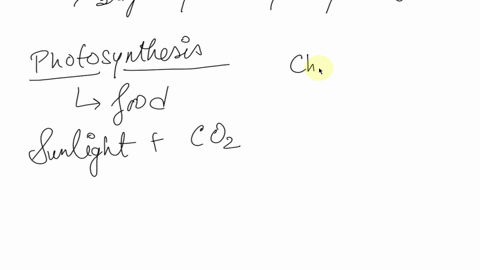 Photosynthesis
↳ food
Sunlight + CO2
Ch